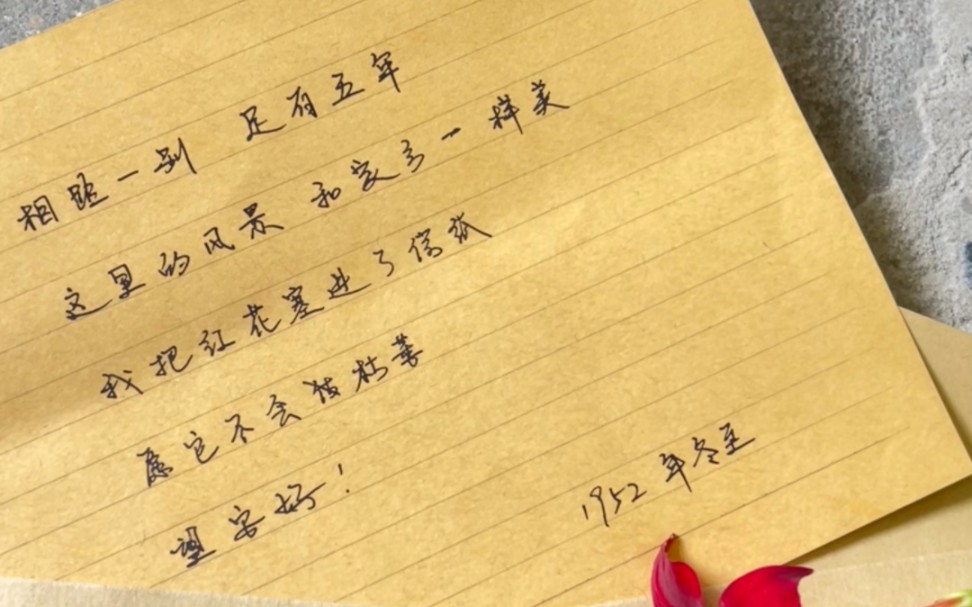 相距一别 足有五年
这里的风景 和家乡一样美
我把红花塞进了信纸
愿它不会被枯萎
望安好!
1952年冬至